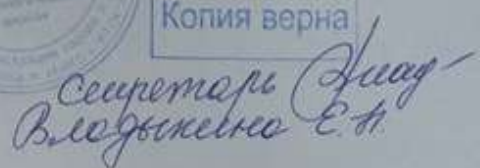 Копия верна
Секретарь
Владыкина Е.Н.